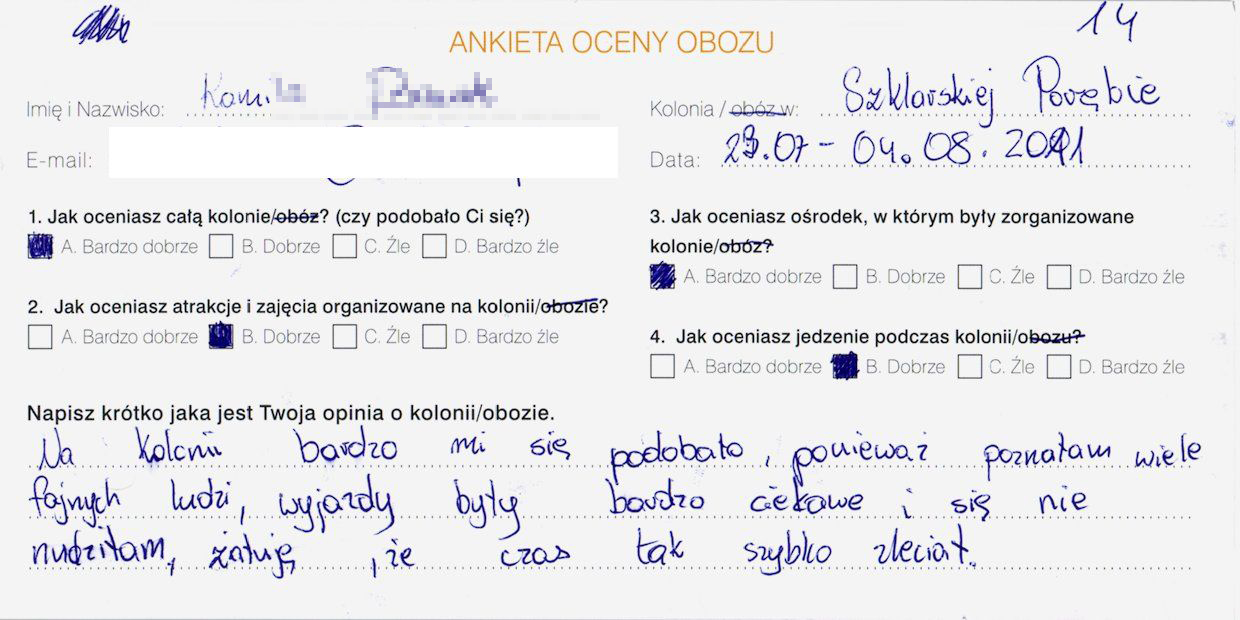 14
ANKIETA OCENY OBOZU
Imię i Nazwisko:
E-mail:
Kolonia / obóz w: Szklarskiej Porębie
Data: 23.07 - 04.08. 2011
1. Jak oceniasz całą kolonie/obóz? (czy podobało Ci się?)
A. Bardzo dobrze B. Dobrze C. Źle D. Bardzo źle
2. Jak oceniasz atrakcje i zajęcia organizowane na kolonii/obozie?
A. Bardzo dobrze B. Dobrze C. Źle D. Bardzo źle
3. Jak oceniasz ośrodek, w którym były zorganizowane
kolonie/obóz?
A. Bardzo dobrze B. Dobrze C. Źle D. Bardzo źle
4. Jak oceniasz jedzenie podczas kolonii/obozu?
A. Bardzo dobrze B. Dobrze C. Źle D. Bardzo źle
Napisz krótko jaka jest Twoja opinia o kolonii/obozie.
Na kolonii bardzo mi się podobało, ponieważ poznałam wiele
fajnych ludzi, wyjazdy były bardzo ciekawe i się nie
nudziłam, żałuję, że czas tak szybko zleciał.